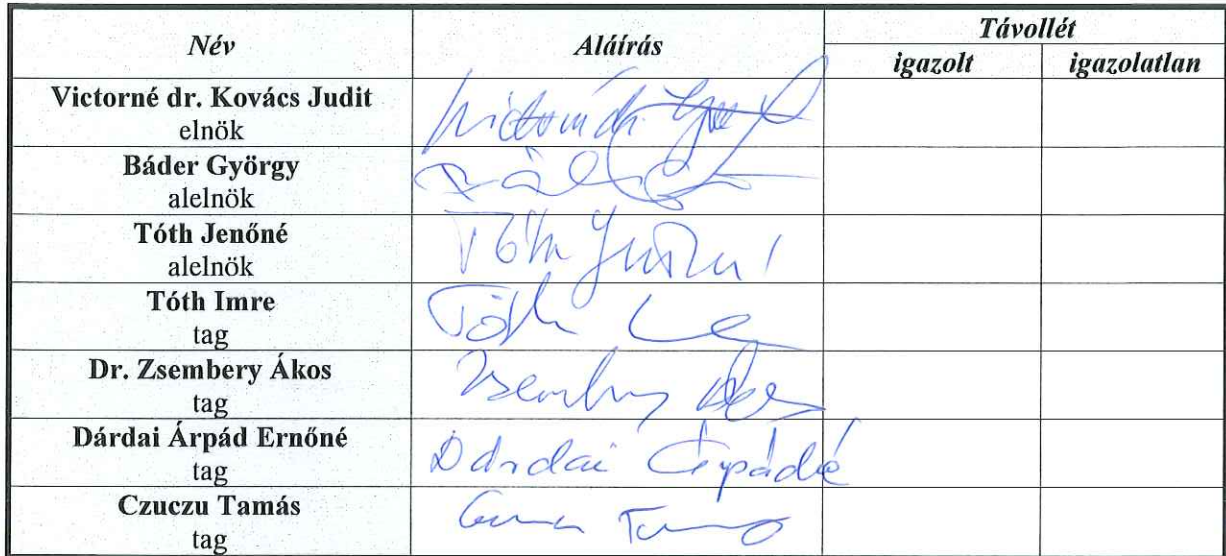 Név Aláírás Távollét
igazolt igazolatlan
Victorné dr. Kovács Judit
elnök
Báder György
alelnök
Tóth Jenőné
alelnök
Tóth Jenőné
Tóth Imre
tag
Tóth
Dr. Zsembery Ákos
tag
Zsembery Ákos
Dárdai Árpád Ernőné
tag
Dárdai Árpádné
Czuczu Tamás
tag